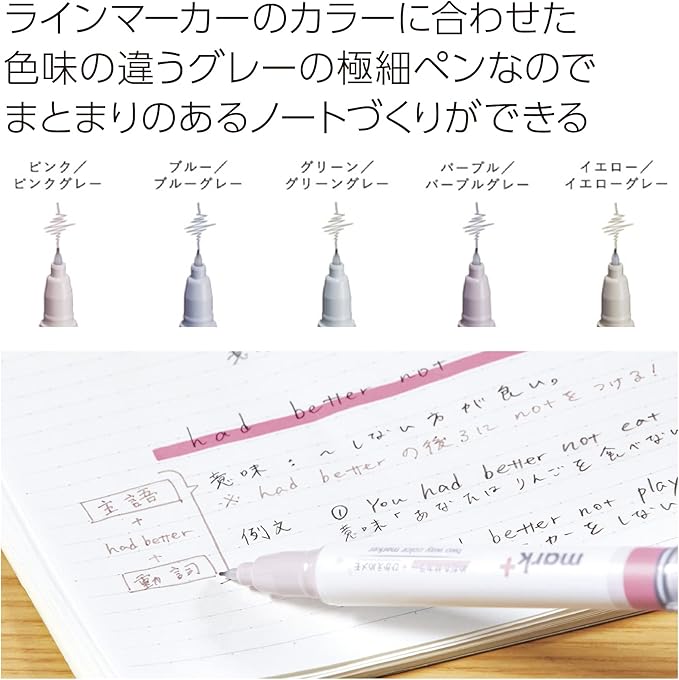 ラインマーカーのカラーに合わせた
色味の違うグレーの極細ペンなので
まとまりのあるノートづくりができる
ピンク／
ピンクグレー
ブルー／
ブルーグレー
グリーン／
グリーングレー
パープル／
パープルグレー
イエロー／
イエローグレー
had better not
意味：〜しない方が良い。
※ had better の後ろに notをつける！
主語
+
had better
+
動詞
例文
① You had better not eat
意味、あなたはりんごを食べない
better not play
カーをしない
mark+
two way color marker